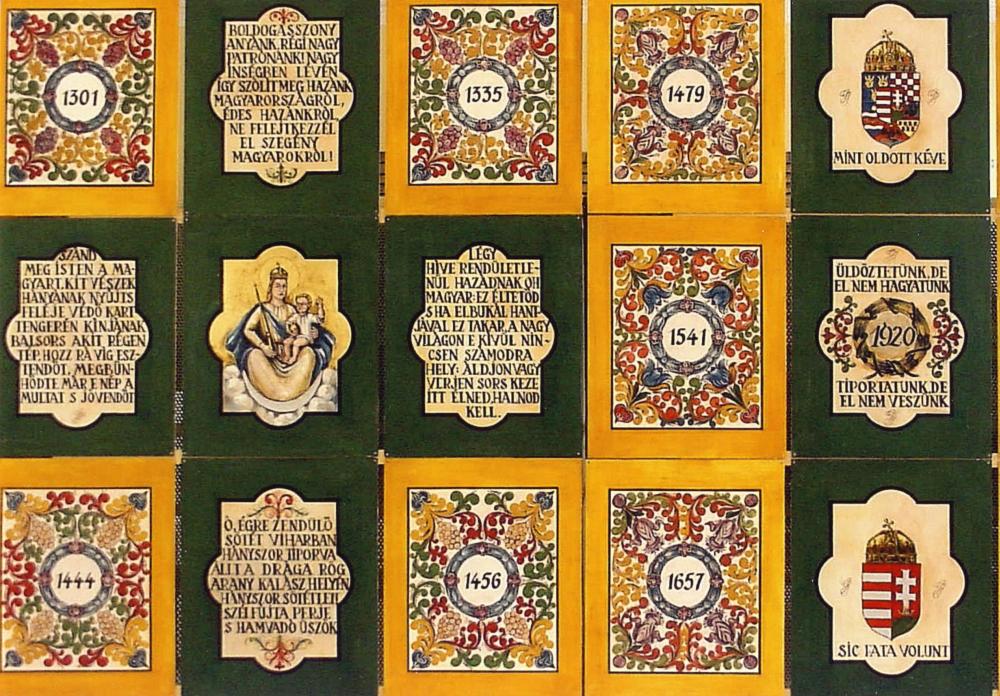 1301
BOLDOGASSZONY
ANYÁNK, RÉGI NAGY
PÁTRÓNÁNK! NAGY
ÍNSÉGBEN LÉVÉN
ÍGY SZÓLÍT MEG HAZÁNK
MAGYARORSZÁGRÓL,
ÉDES HAZÁNKRÓL,
NE FELEJTKEZZÉL
EL SZEGÉNY
MAGYAROKRÓL!
1335
1479
MINT OLDOTT KÉVE
SZÁND
MEG ISTEN A MA-
GYART, KIT VÉSZEK
HÁNYÁNAK NYÚJTS
FELÉJE VÉDŐ KART
TENGERÉN KÍNJÁNAK
BALSORS AKIT RÉGEN
TÉP, HOZZ RÁ VÍG ESZ-
TENDŐT, MEGBŰN-
HŐDTE MÁR E NÉP A
MULTAT S JÖVENDŐT
LÉGY
HÍVE RENDÜLETLE-
NÜL HAZÁDNAK OH
MAGYAR: EZ ÉLTETŐD
S HA ELBUKÁL HANT-
JÁVAL EZ TAKAR, A NAGY
VILÁGON E KÍVÜL NIN-
CSEN SZÁMODRA
HELY: ÁLDJON VAGY
VERJEN SORS KEZE
ITT ÉLNED, HALNOD
KELL.
1541
ÜLDÖZTETÜNK, DE
EL NEM HAGYATUNK
1920
TIPORTATUNK, DE
EL NEM VESZÜNK
1444
Ó, ÉGRE ZENDÜLŐ
SÖTÉT VIHARBAN
HÁNYSZOR TIPORVA
ÁLLT A DRÁGA RÖG
ARANY KALÁSZ HELYÉN
HÁNYSZOR SÖTÉTLETT
SZÉLFÚJTA PERJE
S HAMVADÓ ÜSZÖK
1456
1657
SIC FATA VOLUNT